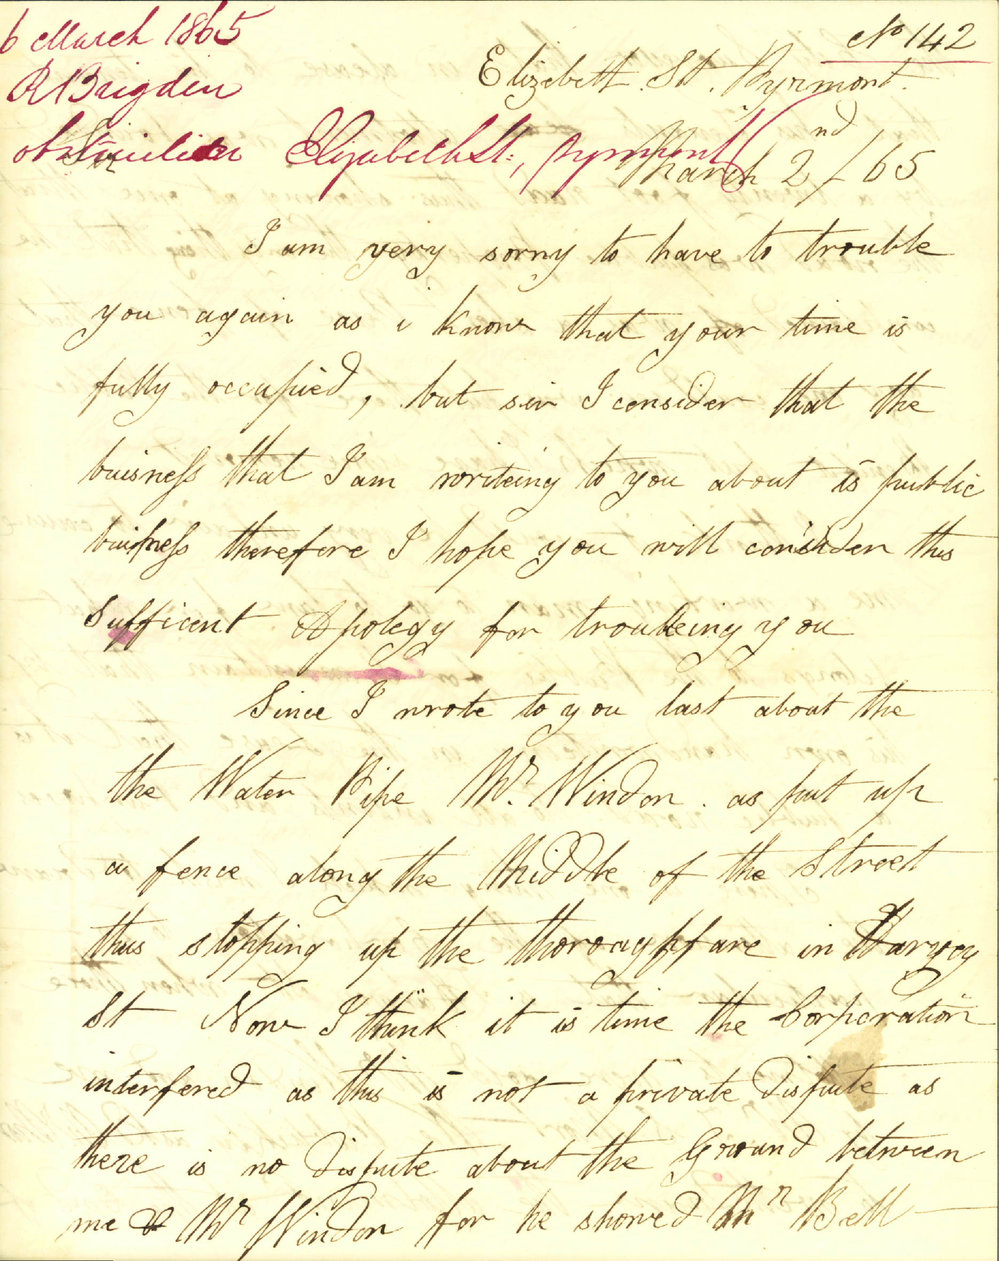 6 March 1865
No 142
R Brigden
Elizebett St. Pyrmont.
obstruction Elizabeth St:, Pyrmont
Sir
March 2nd / 65
I am very sorry to have to trouble
you again as i know that your time is
fully occupied, but sir I consider that the
buisness that I am writeing to you about is public
buisness therefore I hope you will consider this
sufficent Apology for troubeing you
Since I wrote to you last about the
the Water Pipe Mr. Windon. as put up
a fence along the Middle of the Street
thus stopping up the thoroughfare in Harvey
St Now I think it is time the Corporation
interfered as this is not a private dispute as
there is no dispute about the Ground between
me & Mr Windon for he showed Mr Bell